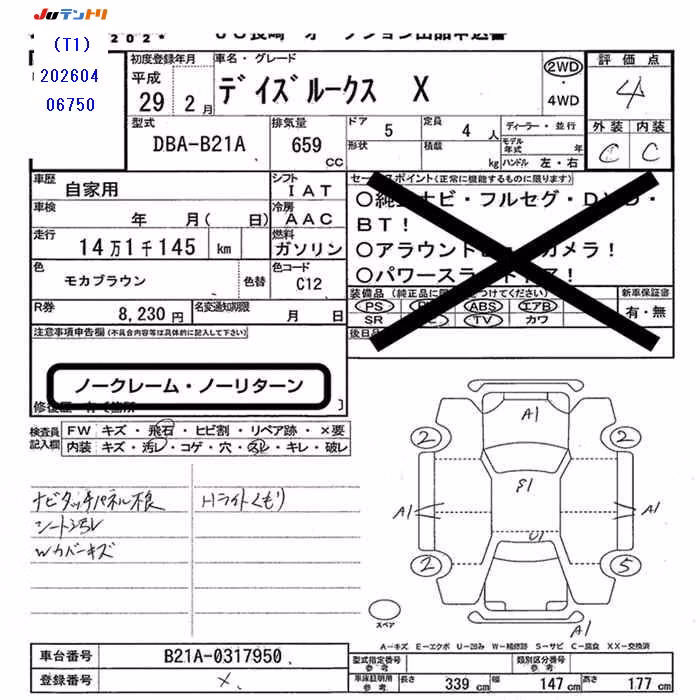 Juテントリ
(T1)
202604
06750
初度登録年月
平成
29 2月
車名・グレード
デイズルークス X
2WD
・
4WD
評価点
4
外装 内装
C C
型式
DBA-B21A
排気量
659
cc
ドア 5
形状
定員 4 人
積載 kg
ディーラー・並行
モデル年式 年
ハンドル 左・右
車歴
自家用
車検
年 月( 日)
走行
14万1千145 km
シフト
IAT
冷房
AAC
燃料
ガソリン
色
モカブラウン
色替
色コード
C12
R券
8,230 円
名変通知期限
月 日
セールスポイント(正常に機能するものに限ります)
BT!
○アラウンド カメラ!
○パワース
装備品
PS ABS エアB
SR TV カワ
新車保証書
有・無
注意事項申告欄(不具合内容等は具体的に記入して下さい)
ノークレーム・ノーリターン
検査員
記入欄
FW キズ・飛石・ヒビ割・リペア跡・×要
内装 キズ・汚レ・コゲ・穴・スレ・キレ・破レ
ナビタッチパネル不良
シート汚レ
Wカバーキズ
Hライトくもり
A1
2 2
E1
A1 A1
U1
2 5
A1
スペア
A-キズ E-エクボ U-凹み W-補修跡 S-サビ C-腐食 XX-交換済
車台番号
B21A-0317950
登録番号
×
型式指定番号
参考
類別区分番号
参考
車庫証明用
参考
長さ 339 cm 幅 147 cm 高さ 177 cm